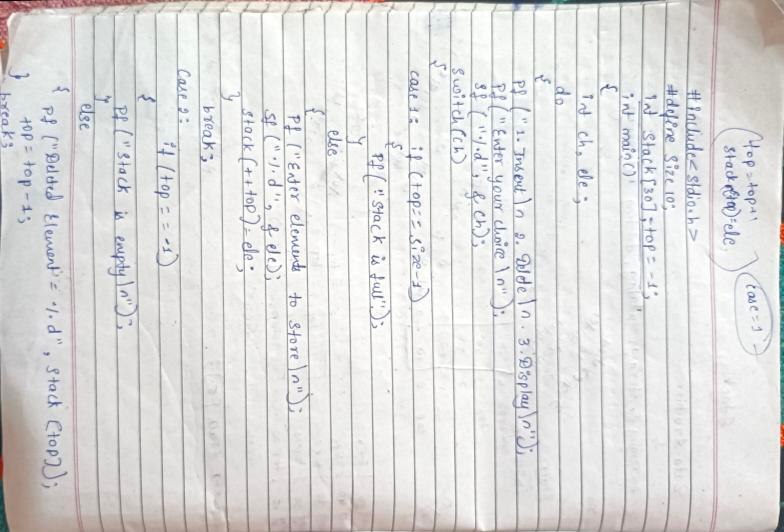 top = top+1
stack[top]=ele;
case=1
#include<stdio.h>
#define size 10;
int stack[30], top = -1;
int main()
{
int ch, ele;
do
{
pf("1. Insert\n 2. Delete\n. 3. Display\n");
pf("Enter your choice\n");
sf("%d", & ch);
switch(ch)
{
case 1: if (top == size-1)
{
pf("Stack is full");
}
else
{
pf("Enter elements to store\n");
sf("%d", & ele);
stack(++top)=ele;
}
break;
Case 2:
if (top == -1)
{
pf("Stack is empty\n");
}
else
{
pf("Deleted Element = %d", stack [top]);
top = top-1;
}
break;